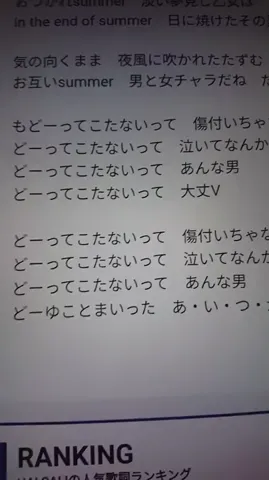 おつかれsummer 淡い夢見し乙女は
in the end of summer 日に焼けたその
気の向くまま 夜風に吹かれたたずむ
お互いsummer 男と女チャラだね
もどーってこたないって 傷付いちゃ
どーってこたないって 泣いてなんか
どーってこたないって あんな男
どーってこたないって 大丈V
どーってこたないって 傷付いちゃな
どーってこたないって 泣いてなんか
どーってこたないって あんな男
どーゆことまいった あ・い・つ・
RANKING
HALCALIの人気歌詞ランキング